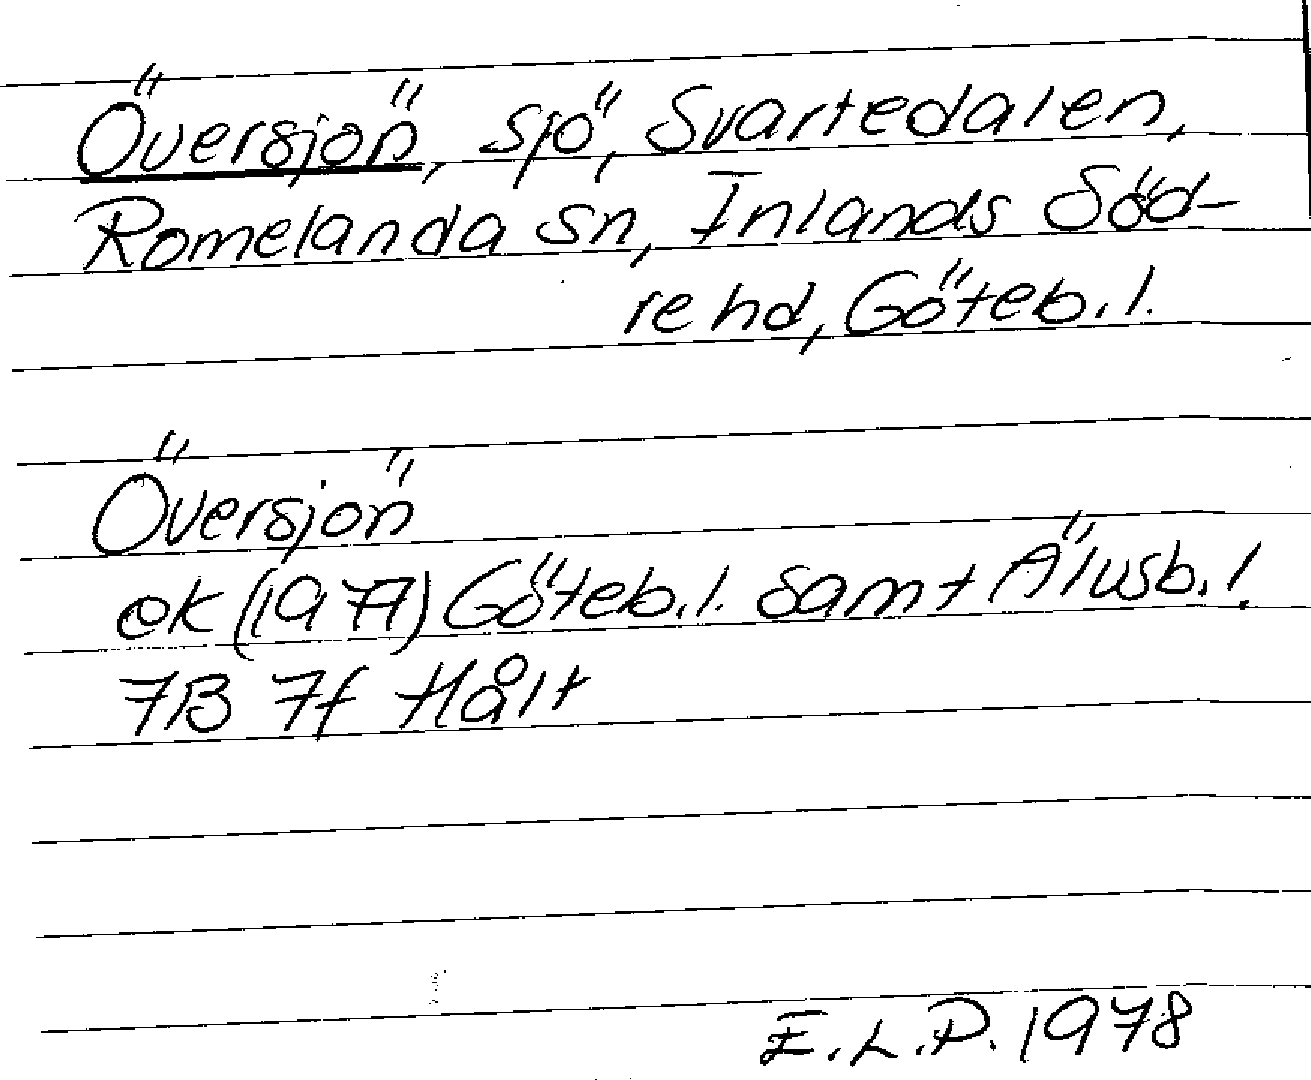 Översjön, sjö, Svartedalen,
Romelanda sn, Inlands Söd-
re hd, Göteb. l.
Översjön
ek (1977) Göteb. l. samt Älvsb. l.
7B 7f Hålt
E.L.P. 1978